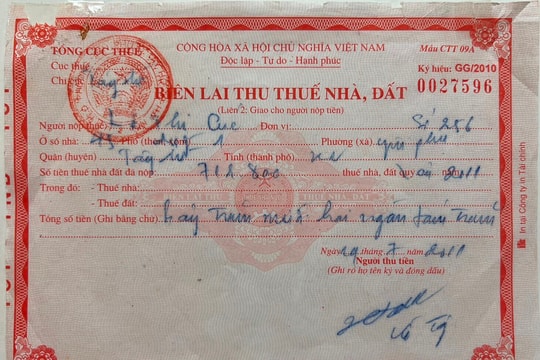 TỔNG CỤC THUẾ
CỘNG HÒA XÃ HỘI CHỦ NGHĨA VIỆT NAM
Mẫu CTT 09A
Cục thuế
Độc lập - Tự do - Hạnh phúc
Ký hiệu: GG/2010
Chi cục Tây Hồ
0027596
BIÊN LAI THU THUẾ NHÀ, ĐẤT
(Liên 2: Giao cho người nộp tiền)
Người nộp thuế: Thị Cúc Đơn vị: Số 256
Ở số nhà: 45 Phố (thôn, xóm) 1 Phường (xã) Yên Phụ
Quận (huyện) Tây Hồ Tỉnh (thành phố) HN
Số tiền thuế nhà đất đã nộp: 712.800 thuế nhà, đất 2011
Trong đó: - Thuế nhà:
- Thuế đất:
Tổng số tiền (Ghi bằng chữ) bảy trăm mười hai ngàn tám trăm
Ngày 29 tháng 7 năm 2011
Người thu tiền
(Ghi rõ họ tên ký và đóng dấu)
In tại Công ty in Tài chính